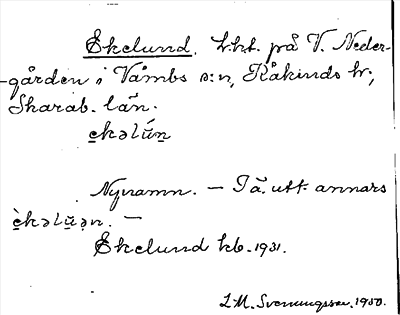 Ekelund. t.ht. på V. Neder-
-gården i Våmbs s:n, Kåkinds hr,
Skarab. län.
e̠kəlū́n̠
Nynamn. — Iä. utt. annars
è̠kəlū̠ən. —
Ekelund kb. 1931.
L M. Svenungsson. 1950.